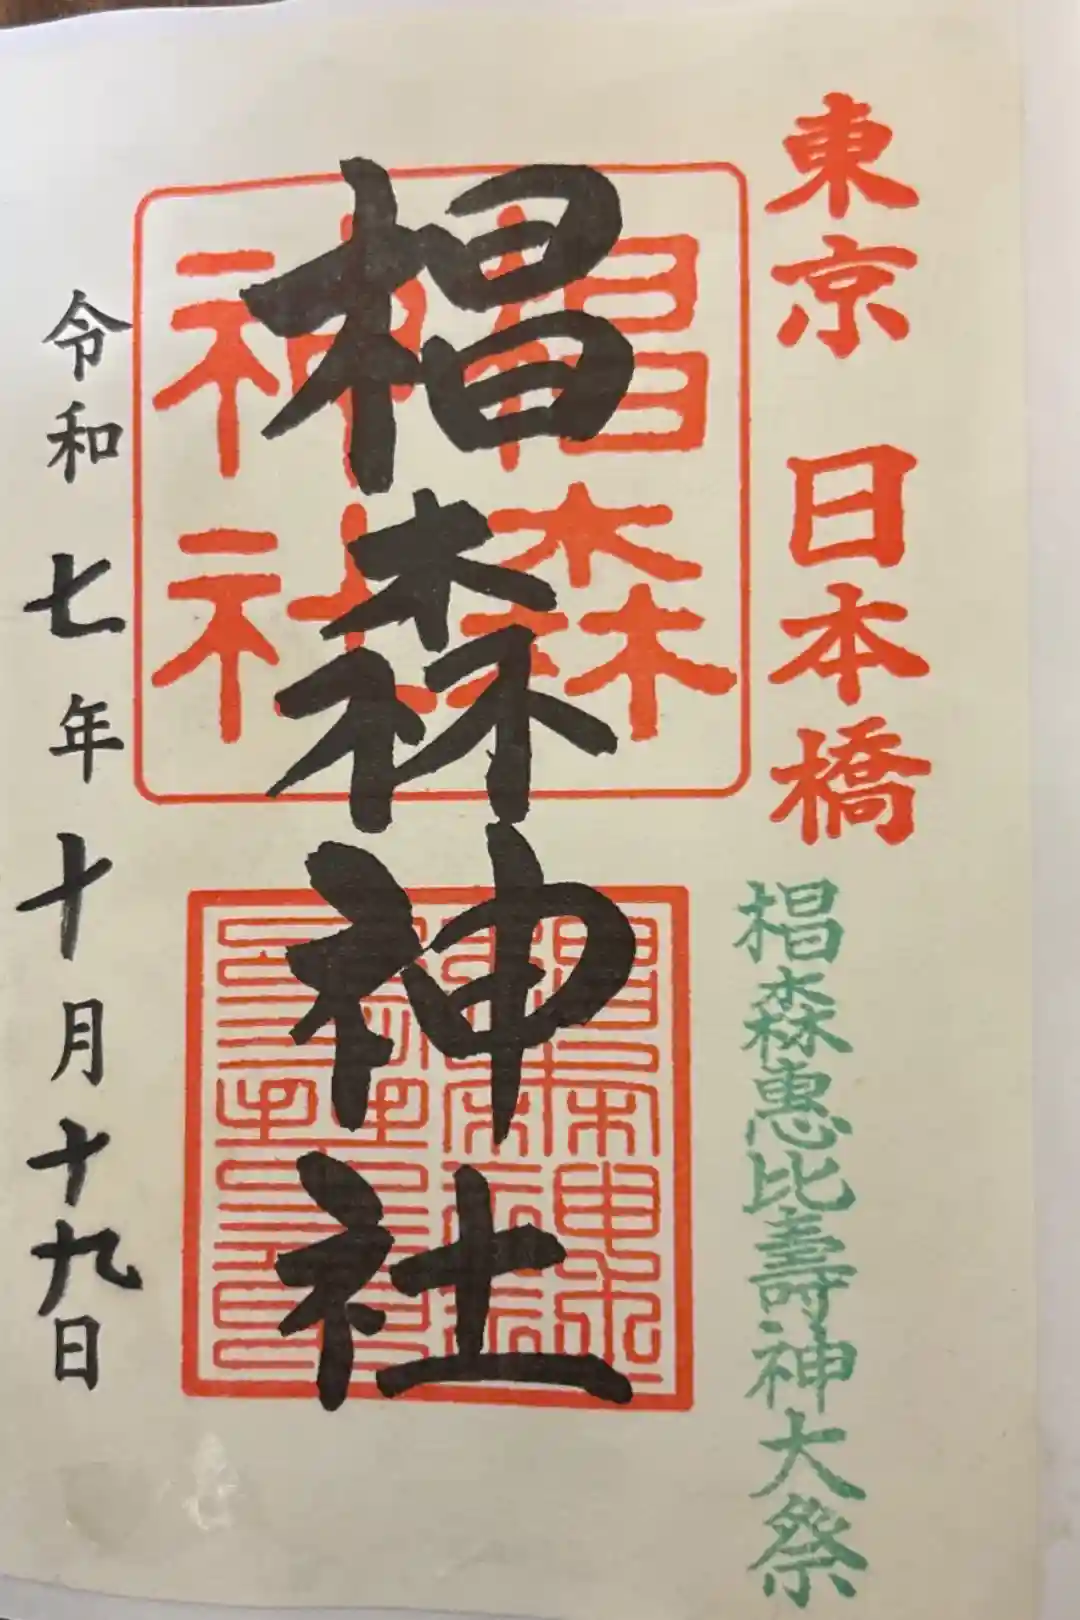 東京 日本橋
椙森惠比壽神大祭
椙森神社
椙森
神社
令和七年十月十九日